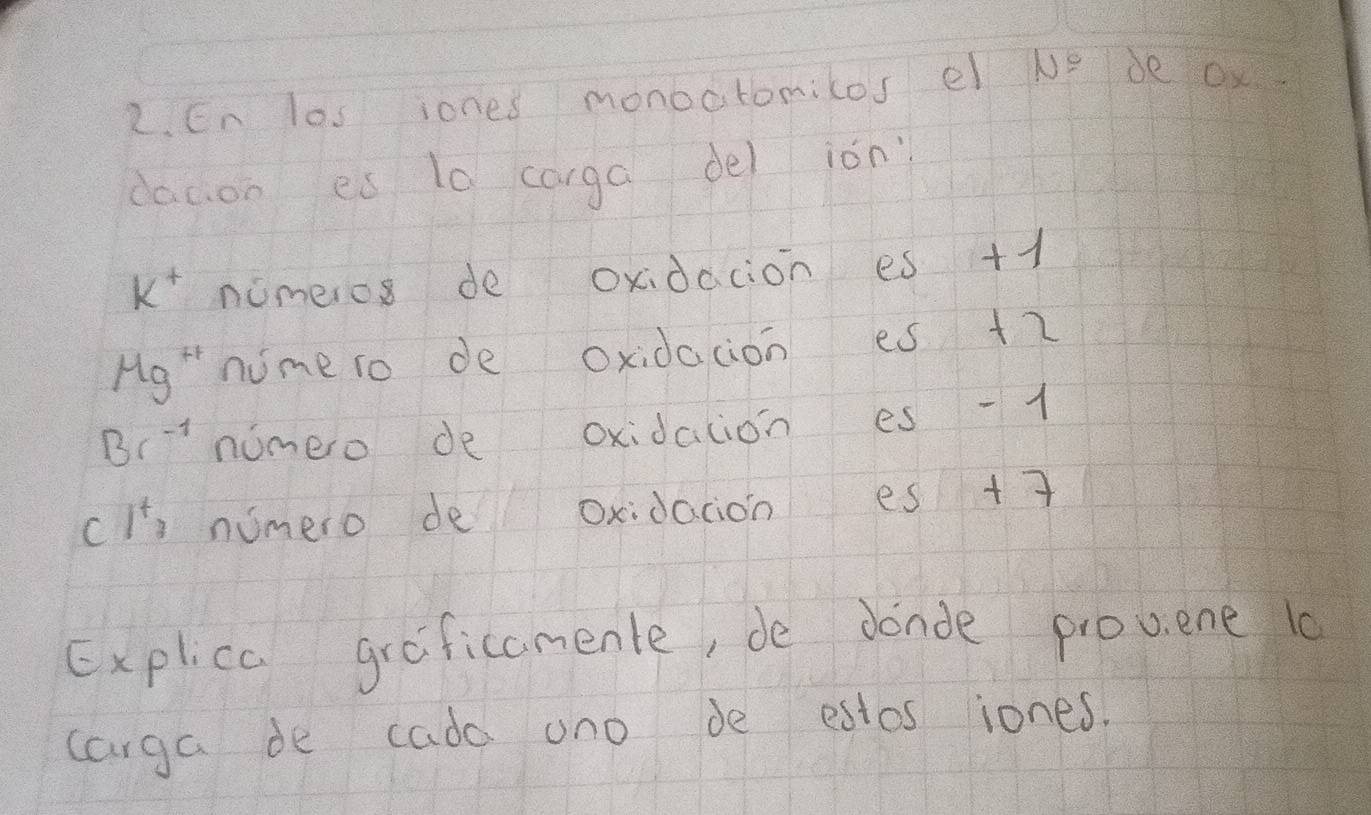 2. En los iones monoatomicos el Nº de ox-
dación es la carga del ión:
K⁺ números de oxidación es +1
Mg⁺⁺ número de oxidación es +2
Br⁻¹ número de oxidación es -1
Cl⁺⁷ número de oxidación es +7
Explica gráficamente, de dónde proviene la
carga de cada uno de estos iones.